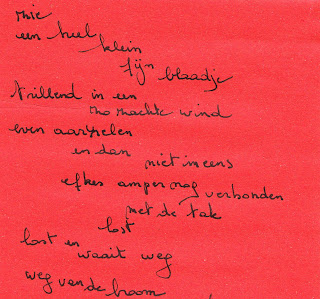 een heel
klein
fijn blaadje
trillend in een
zachte wind
even aarzelen
en dan
niet ineens
efkes amper nog verbonden
met de tak
lost
lost en
waait weg
weg van de boom